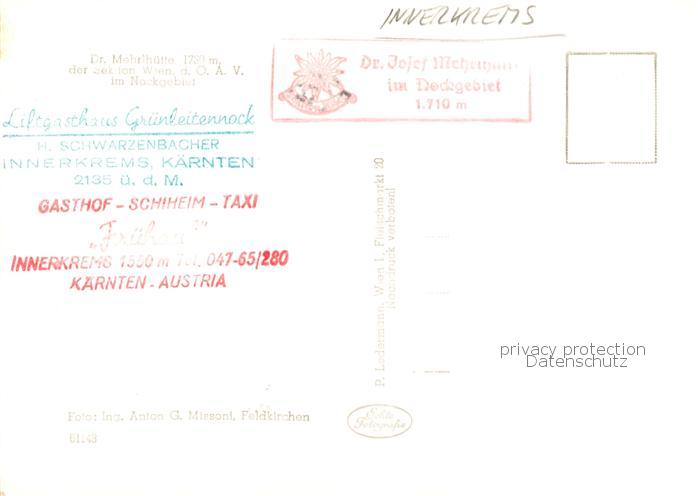 INNERKREMS
Dr. Mehrlhütte, 1730 m,
der Sektion Wien, d. O. A. V.
im Nockgebiet
Dr. Josef Mehrlhütte
im Nockgebiet
1.710 m
Liftgasthaus Grünleitennock
H. SCHWARZENBACHER
INNERKREMS, KÄRNTEN
2135 ü. d. M.
GASTHOF - SCHIHEIM - TAXI
„Frühauf"
INNERKREMS 1550 m Tel. 047-65/280
KÄRNTEN - AUSTRIA
P. Ledermann, Wien I., Fleischmarkt 20
Nachdruck verboten!
privacy protection
Datenschutz
Foto: Ing. Anton G. Missoni, Feldkirchen
Echte
Fotografie